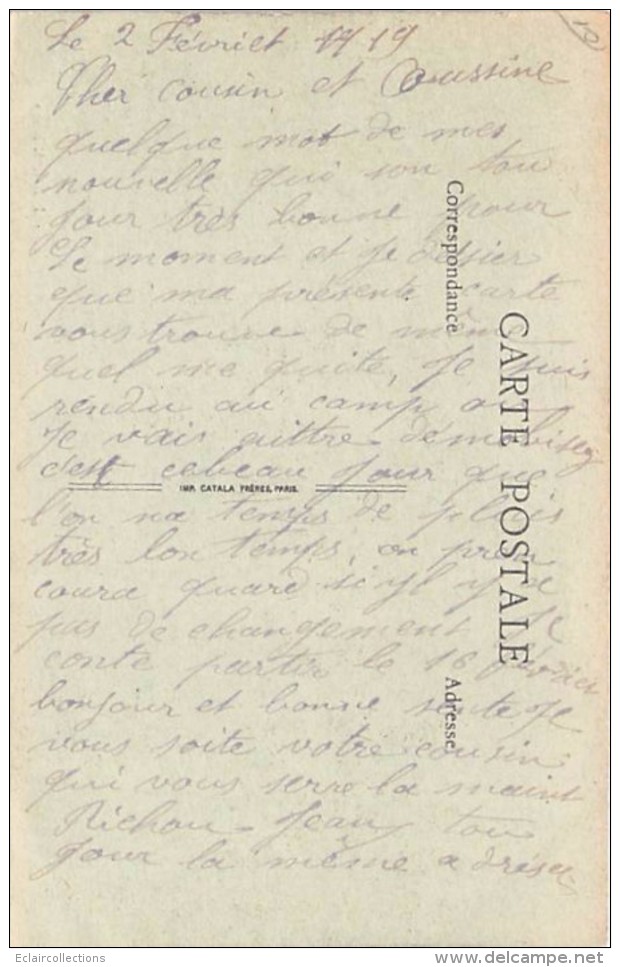 Le 2 Février 1919
Cher cousin et Coussine
quelque mot de mes
nouvelle qui son tou
jour très bonne pour
Le moment et Je désier
que ma présente carte
vous trouve de même
quel me quite, Je suis
rendu au camp
Je vais aittre démobiser
c'est cebeau jour que
IMP. CATALA FRÈRES, PARIS.
l'on na temps de plais
très lon temps, on pren
coura quard si yl y
pas de changement Je
conte partir le 16 février
bonjour et bonne sente Je
vous soite votre cousin
qui vous serre la maint
Richou Jean tou
Jour la même adresse
Correspondance
CARTE POSTALE
Adresse
Eclaircollections
www.delcampe.net